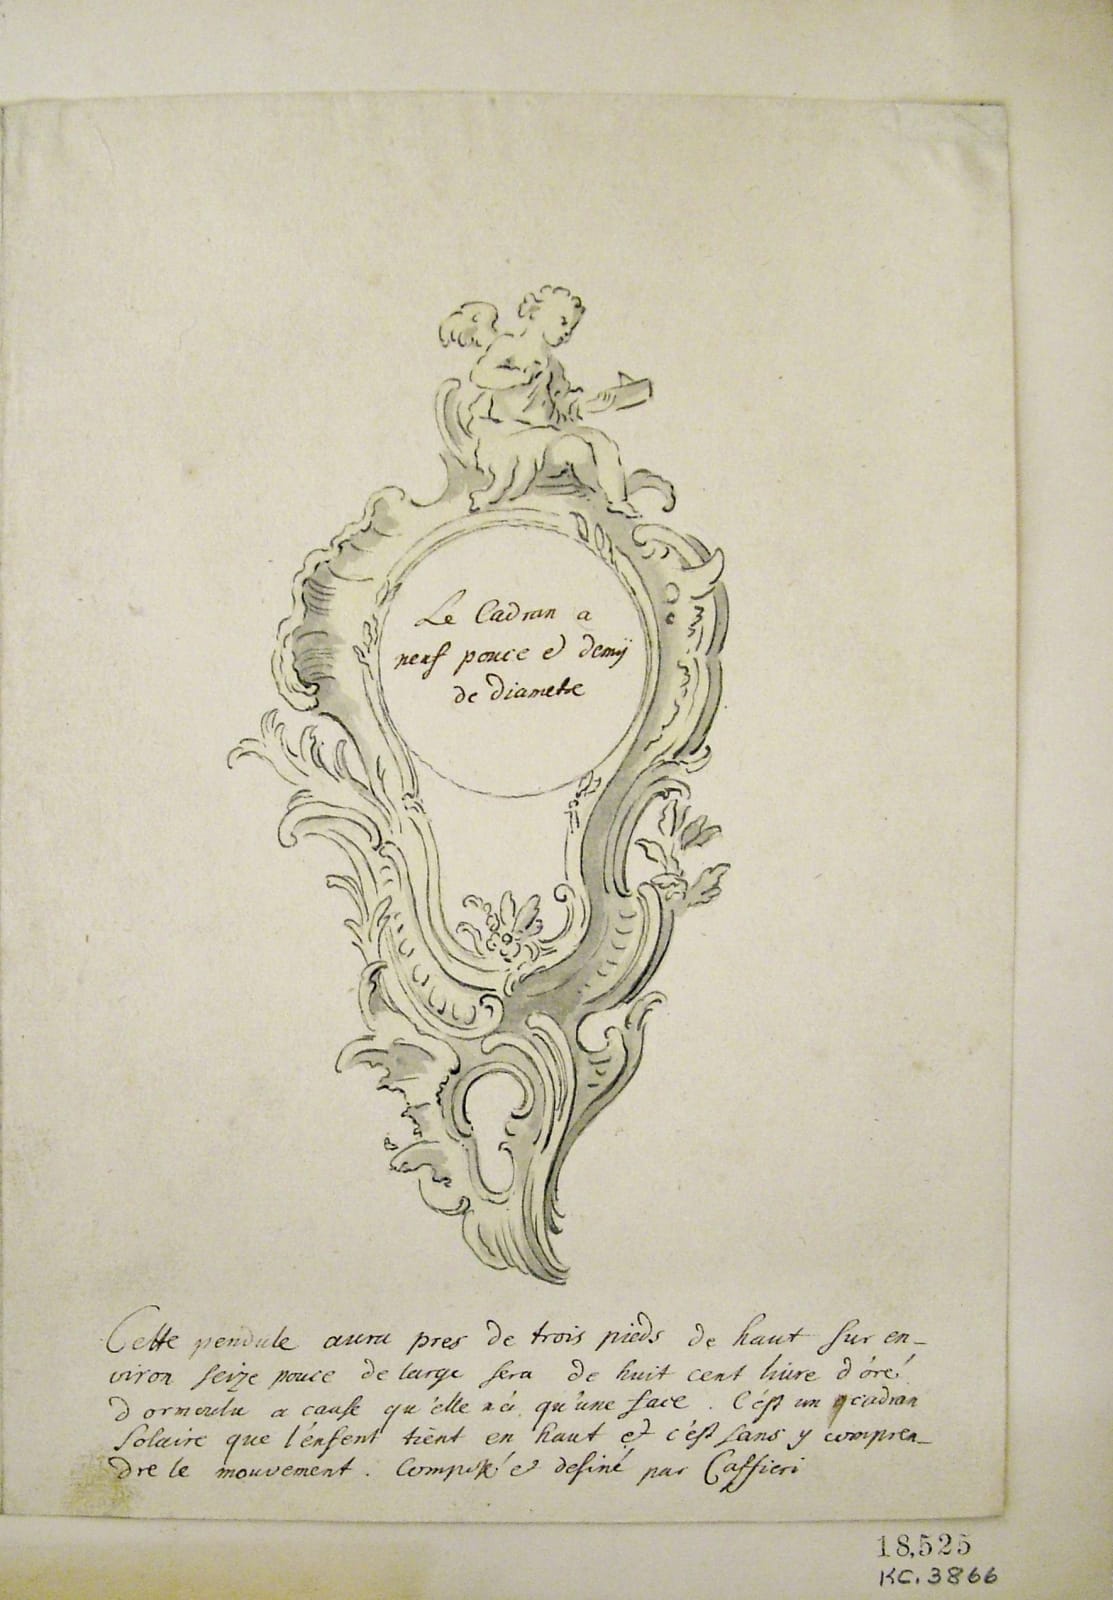 Le Cadran a
neuf pouce et demÿ
de diametre
Cette pendule aura pres de trois pieds de haut sur en-
viron seize pouce de large sera de huit cent livre d'oré
d'ormoulu a cause qu'élle n'a qu'une face. C'ést un cadran
solaire que l'énfent tient en haut et c'ést sans y compren-
dre le mouvement. Composé et desiné par Caffieri
18,525
KC. 3866